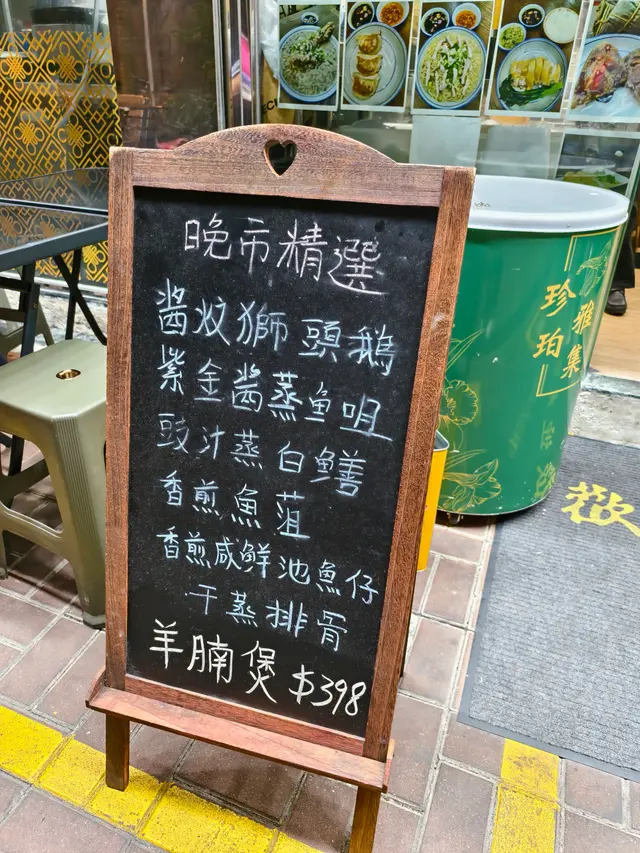 晚市精選
酱炆獅頭鵝
紫金酱蒸鱼咀
豉汁蒸白鱔
香煎魚菹
香煎咸鲜池魚仔
干蒸排骨
羊腩煲 $398
珍珀
雅集
歡